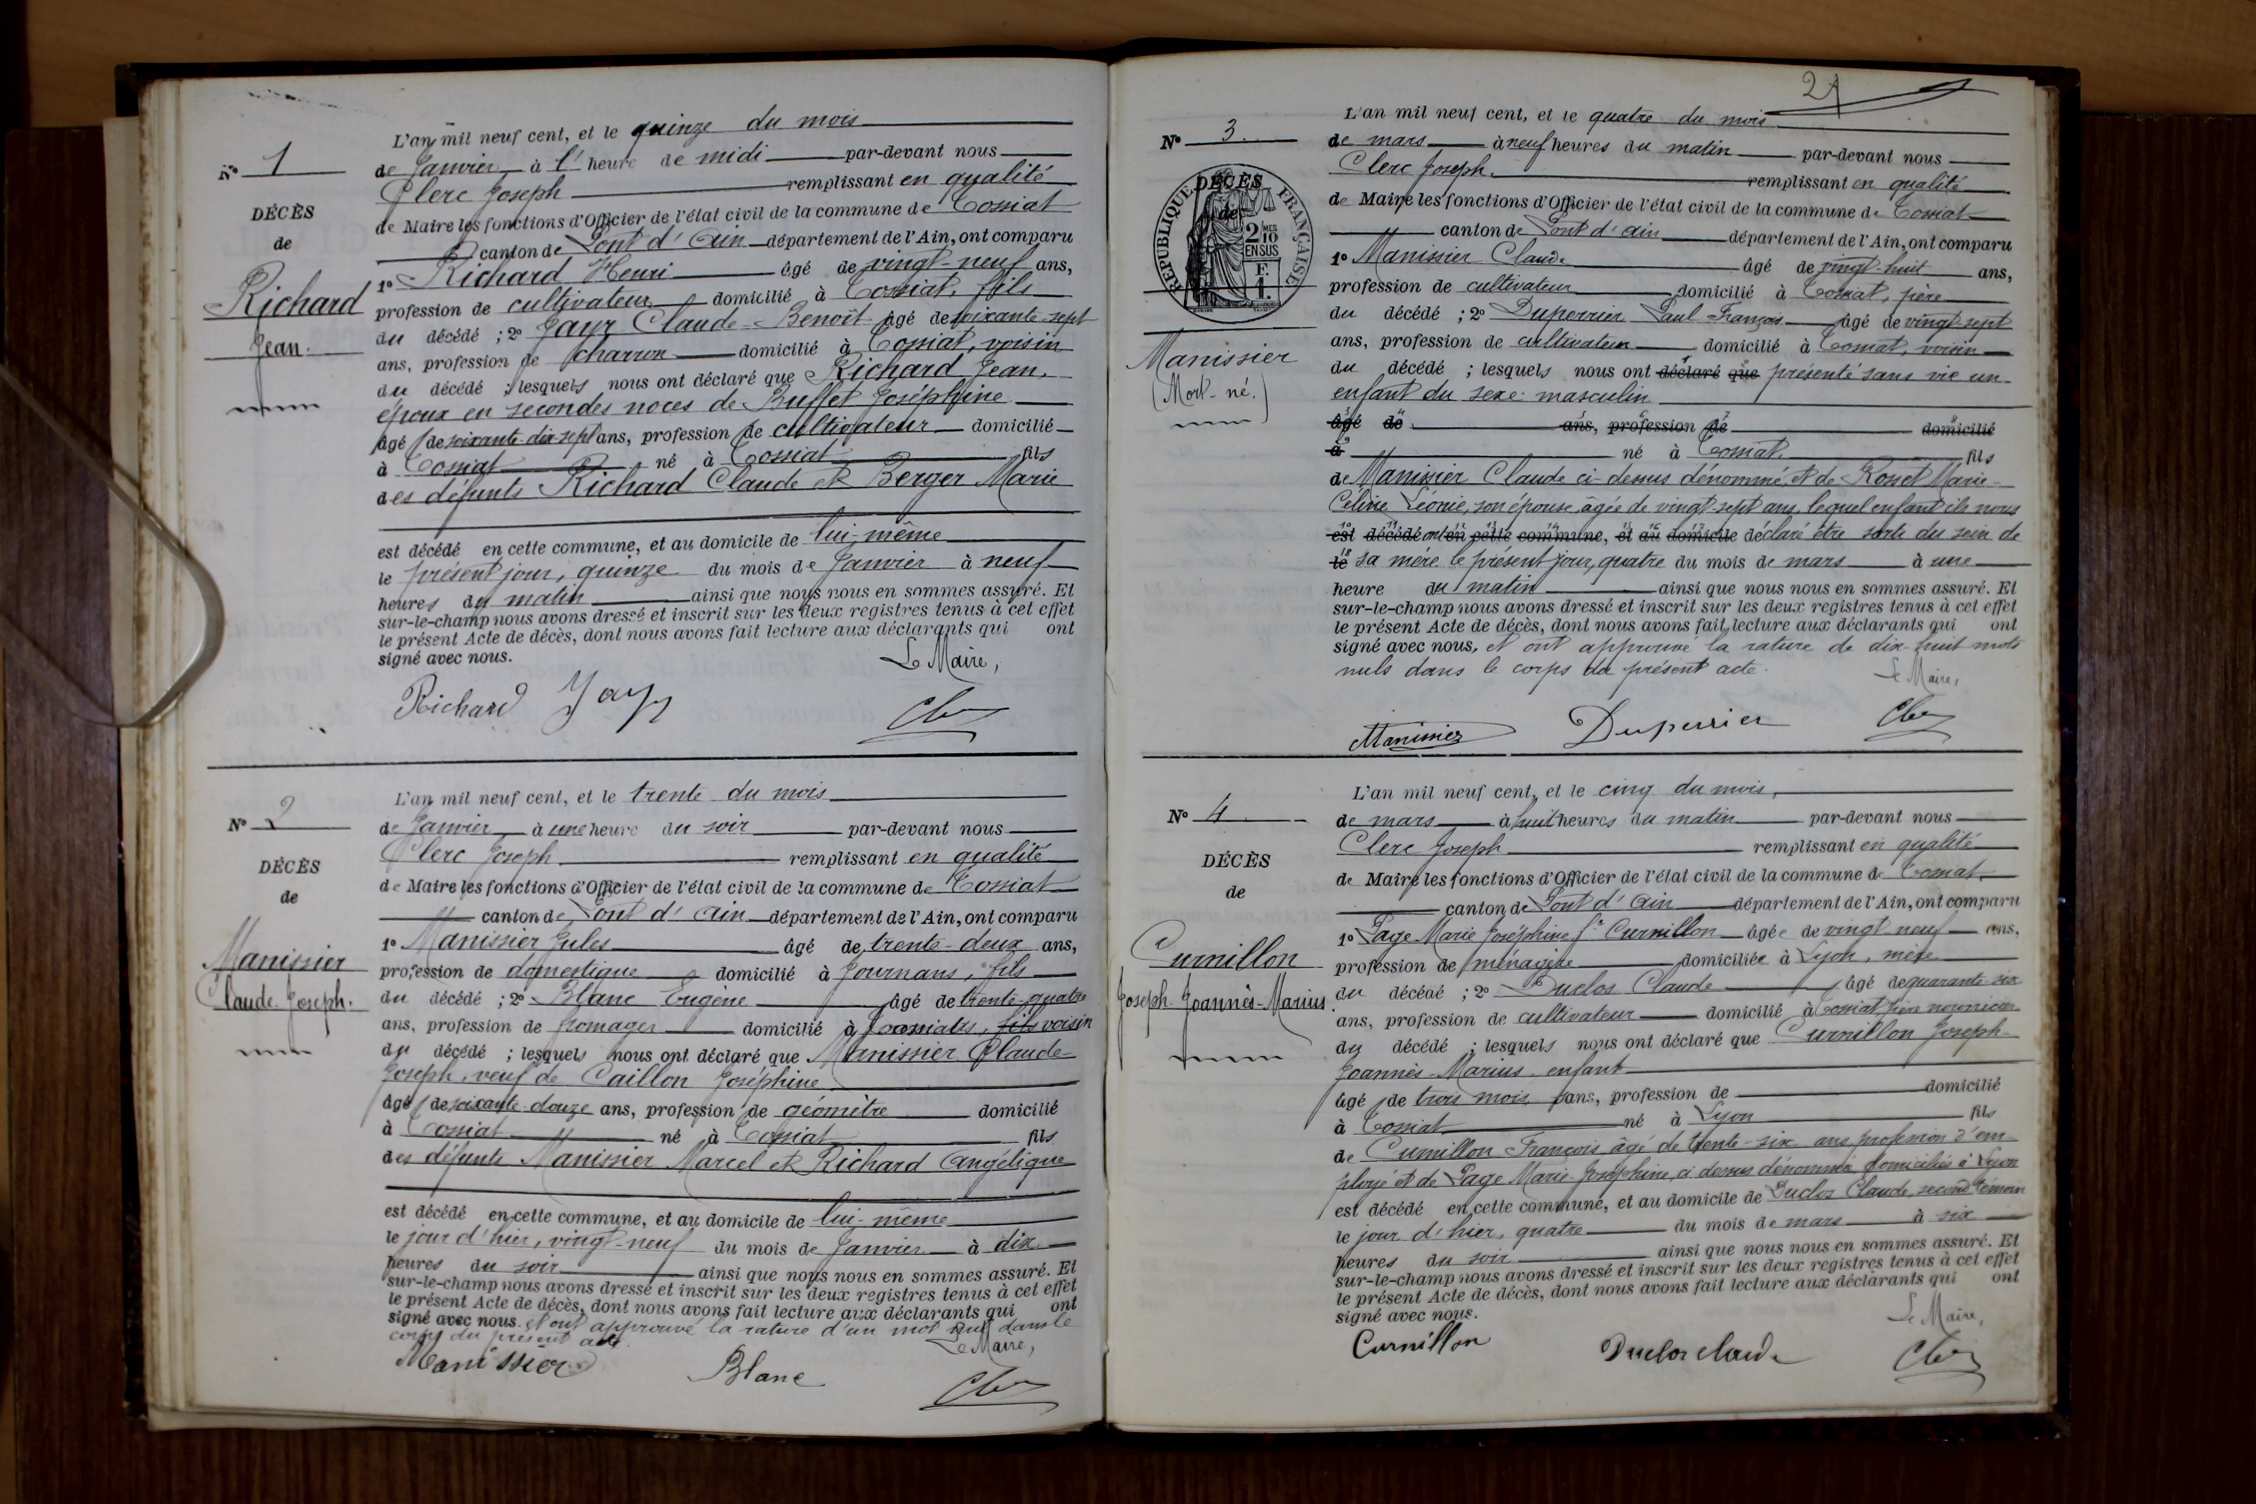 N° 1
DÉCÈS
de
Richard
Jean.
L'an mil neuf cent, et le quinze du mois
de Janvier à l' heure de midi par-devant nous
Clerc Joseph remplissant en qualité
de Maire les fonctions d'Officier de l'état civil de la commune de Tossiat
canton de Pont d'Ain département de l'Ain, ont comparu
1° Richard Henri âgé de vingt-neuf ans,
profession de cultivateur domicilié à Tossiat, fils
du décédé ; 2° Jayr Claude-Benoît âgé de soixante-sept
ans, profession de charron domicilié à Tossiat, voisin
du décédé ; lesquels nous ont déclaré que Richard Jean,
époux en secondes noces de Buffet Joséphine
âgé de soixante-dix-sept ans, profession de cultivateur domicilié
à Tossiat né à Tossiat fils
des défunts Richard Claude et Berger Marie
est décédé en cette commune, et au domicile de lui-même
le présent jour, quinze du mois de Janvier à neuf
heures du matin ainsi que nous nous en sommes assuré. Et
sur-le-champ nous avons dressé et inscrit sur les deux registres tenus à cet effet
le présent Acte de décès, dont nous avons fait lecture aux déclarants qui ont
signé avec nous.
Le Maire,
Richard Jayr Clerc
N° 2
DÉCÈS
de
Manissier
Claude-Joseph.
L'an mil neuf cent, et le trente du mois
de Janvier à une heure du soir par-devant nous
Clerc Joseph remplissant en qualité
de Maire les fonctions d'Officier de l'état civil de la commune de Tossiat
canton de Pont d'Ain département de l'Ain, ont comparu
1° Manissier Jules âgé de trente-deux ans,
profession de domestique domicilié à Journans, fils
du décédé ; 2° Blanc Eugène âgé de trente-quatre
ans, profession de fromager domicilié à fils voisin
du décédé ; lesquels nous ont déclaré que Manissier Claude
Joseph, veuf de Caillon Joséphine
âgé de soixante-douze ans, profession de géomètre domicilié
à Tossiat né à Tossiat fils
des défunts Manissier Marcel et Richard Angélique
est décédé en cette commune, et au domicile de lui-même
le jour d'hier, vingt-neuf du mois de Janvier à dix
heures du soir ainsi que nous nous en sommes assuré. Et
sur-le-champ nous avons dressé et inscrit sur les deux registres tenus à cet effet
le présent Acte de décès, dont nous avons fait lecture aux déclarants qui ont
signé avec nous et ont approuvé la rature d'un mot nul dans le
corps du présent acte.
Le Maire,
Manissier Blanc Clerc
21
N° 3.
DÉCÈS
de
RÉPUBLIQUE FRANÇAISE
2 MES
10
EN SUS
F.
1.
Manissier
(Mort-né.)
L'an mil neuf cent, et le quatre du mois
de mars à neuf heures du matin par-devant nous
Clerc Joseph. remplissant en qualité
de Maire les fonctions d'Officier de l'état civil de la commune de Tossiat
canton de Pont d'Ain département de l'Ain, ont comparu
1° Manissier Claude âgé de vingt-huit ans,
profession de cultivateur domicilié à Tossiat, père
du décédé ; 2° Duperrier Paul-François âgé de vingt-sept
ans, profession de cultivateur domicilié à Tossiat, voisin
du décédé ; lesquels nous ont déclaré que présenté sans vie un
enfant du sexe masculin
âgé de ans, profession de domicilié
à né à Tossiat, fils
de Manissier Claude ci-dessus dénommé, et de Rosset Marie-
Céline Léonie, son épouse, âgée de vingt-sept ans, lequel enfant ils nous
est décédé ont en cette commune, et au domicile déclaré être sorti du sein de
le sa mère le présent jour, quatre du mois de mars à une
heure du matin ainsi que nous nous en sommes assuré. Et
sur-le-champ nous avons dressé et inscrit sur les deux registres tenus à cet effet
le présent Acte de décès, dont nous avons fait lecture aux déclarants qui ont
signé avec nous, et ont approuvé la rature de dix-huit mots
nuls dans le corps du présent acte.
Le Maire,
Manissier Duperrier Clerc
N° 4
DÉCÈS
de
Curnillon
Joseph-Joannès-Marius.
L'an mil neuf cent, et le cinq du mois,
de mars à huit heures du matin par-devant nous
Clerc Joseph remplissant en qualité
de Maire les fonctions d'Officier de l'état civil de la commune de Tossiat
canton de Pont d'Ain département de l'Ain, ont comparu
1° Page Marie Joséphine fe Curnillon âgée de vingt neuf ans,
profession de ménagère domiciliée à Lyon, mère
du décédé ; 2° Duclos Claude âgé de quarante-six
ans, profession de cultivateur domicilié à Tossiat, père nourricier
du décédé ; lesquels nous ont déclaré que Curnillon Joseph-
Joannès-Marius, enfant
âgé de trois mois ans, profession de domicilié
à Tossiat né à Lyon fils
de Curnillon François, âgé de trente-six ans, profession d'em-
ployé et de Page Marie Joséphine, ci-dessus dénommée, domiciliés à Lyon
est décédé en cette commune, et au domicile de Duclos Claude, second témoin
le jour d'hier, quatre du mois de mars à six
heures du soir ainsi que nous nous en sommes assuré. Et
sur-le-champ nous avons dressé et inscrit sur les deux registres tenus à cet effet
le présent Acte de décès, dont nous avons fait lecture aux déclarants qui ont
signé avec nous.
Le Maire,
Curnillon Duclos claude Clerc